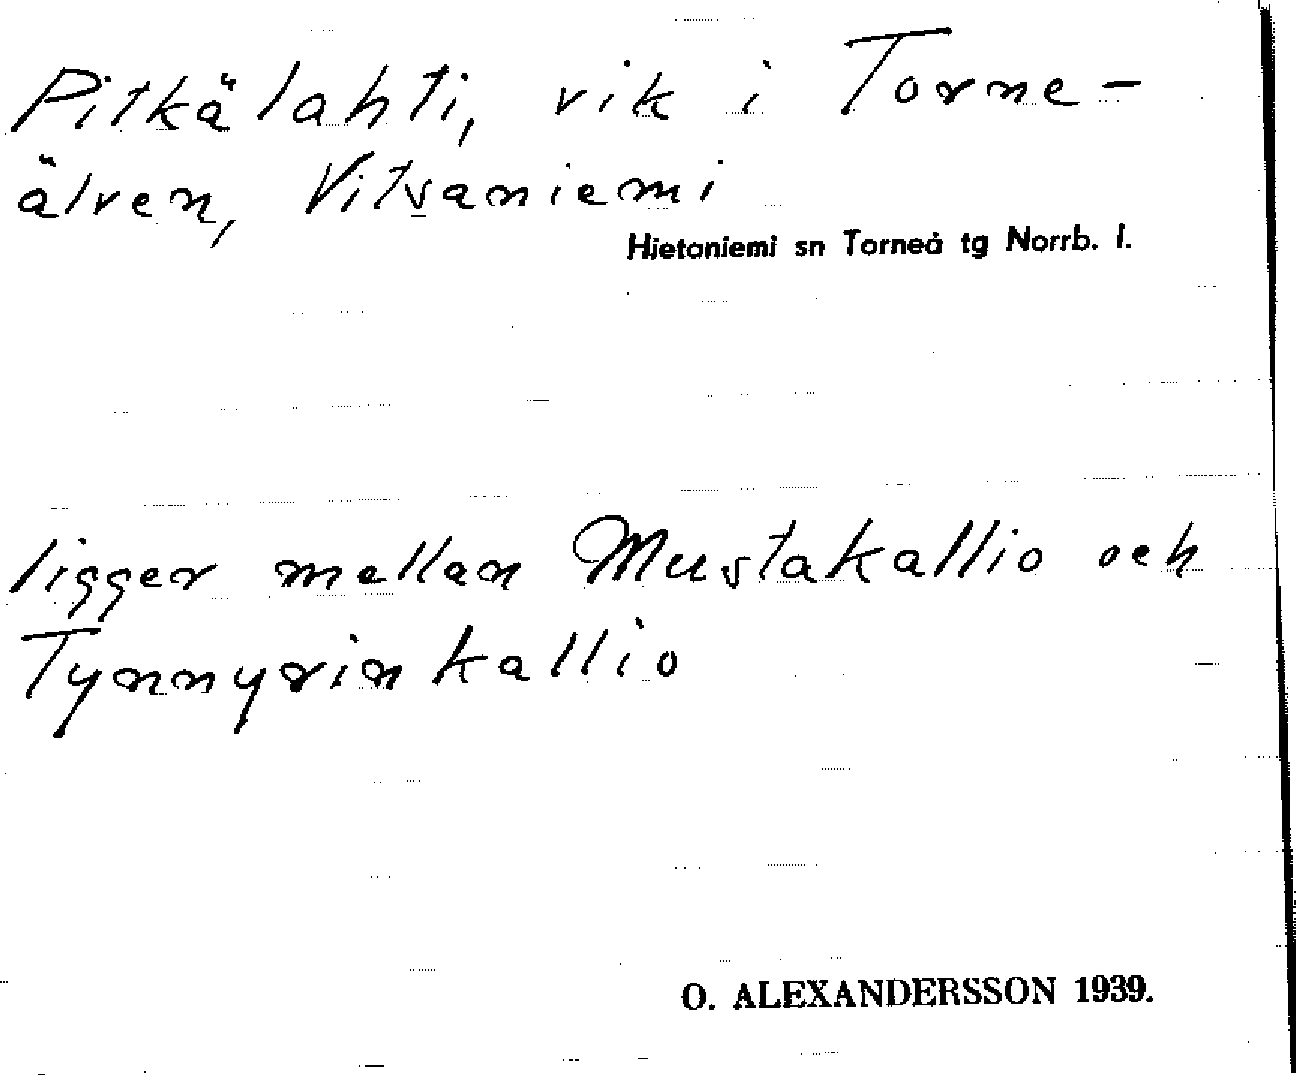 Pitkälahti, vik i Torne-
älven, Vitsaniemi
Hietaniemi sn Torneå tg Norrb. l.
ligger mellan Mustakallio och
Tynnyrinkallio
O. ALEXANDERSSON 1939.